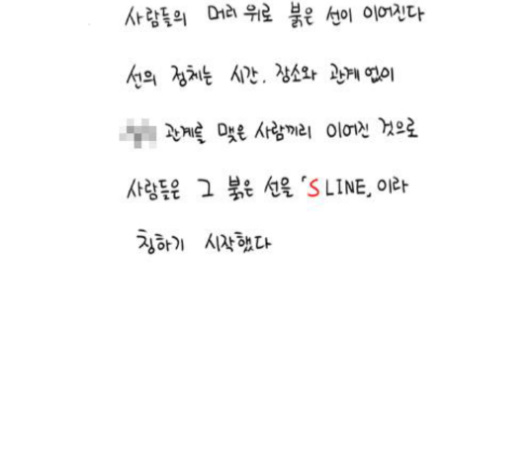 사람들의 머리 위로 붉은 선이 이어진다
선의 정체는 시간, 장소와 관계 없이
관계를 맺은 사람끼리 이어진 것으로
사람들은 그 붉은 선을 「S LINE」이라
칭하기 시작했다